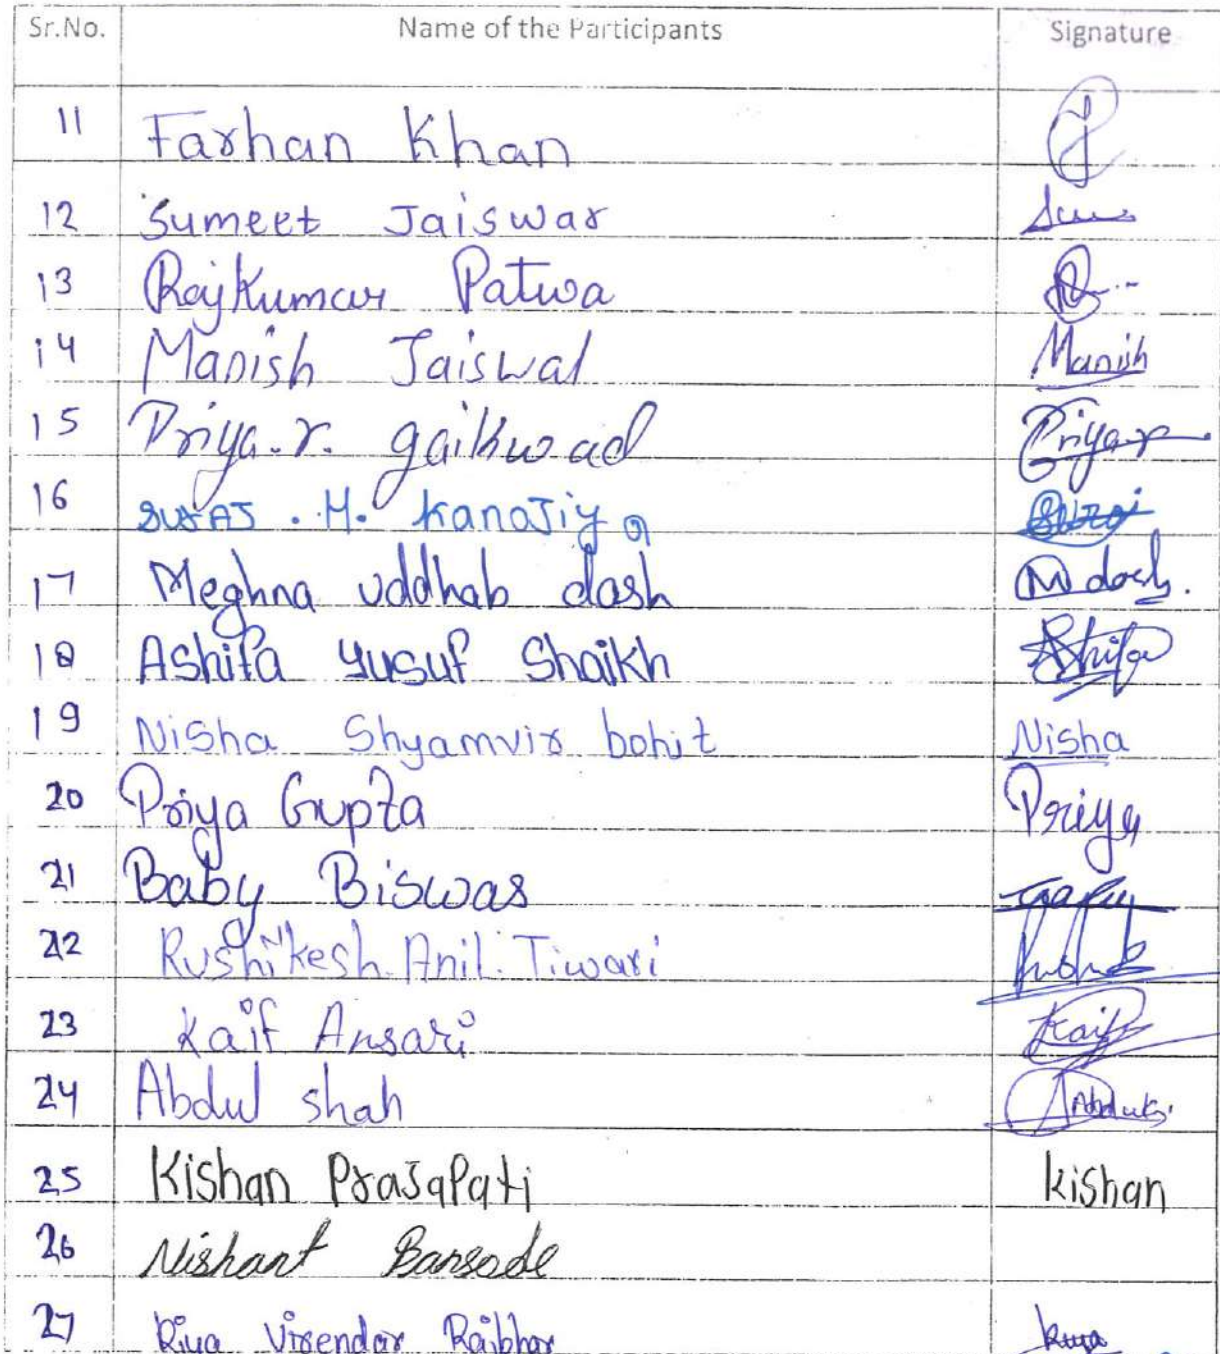 Sr.No. Name of the Participants Signature
11 Farhan Khan
12 Sumeet Jaiswar
13 Rajkumar Patwa
14 Manish Jaiswal Manish
15 Priya.r. gaikwad Priya.r
16 SURAJ . H. KanaJiya Suraj
17 Meghna uddhab dash M dash.
18 Ashifa yusuf Shaikh Ashifa
19 Nisha Shyamvir bohit Nisha
20 Priya Gupta Priya
21 Baby Biswas
22 Rushikesh Anil. Tiwari
23 Kaif Ansari Kaif
24 Abdul shah
25 Kishan PraJaPati kishan
26 Nishant Bansode
27 Riya Virendar Rajbhar Riya